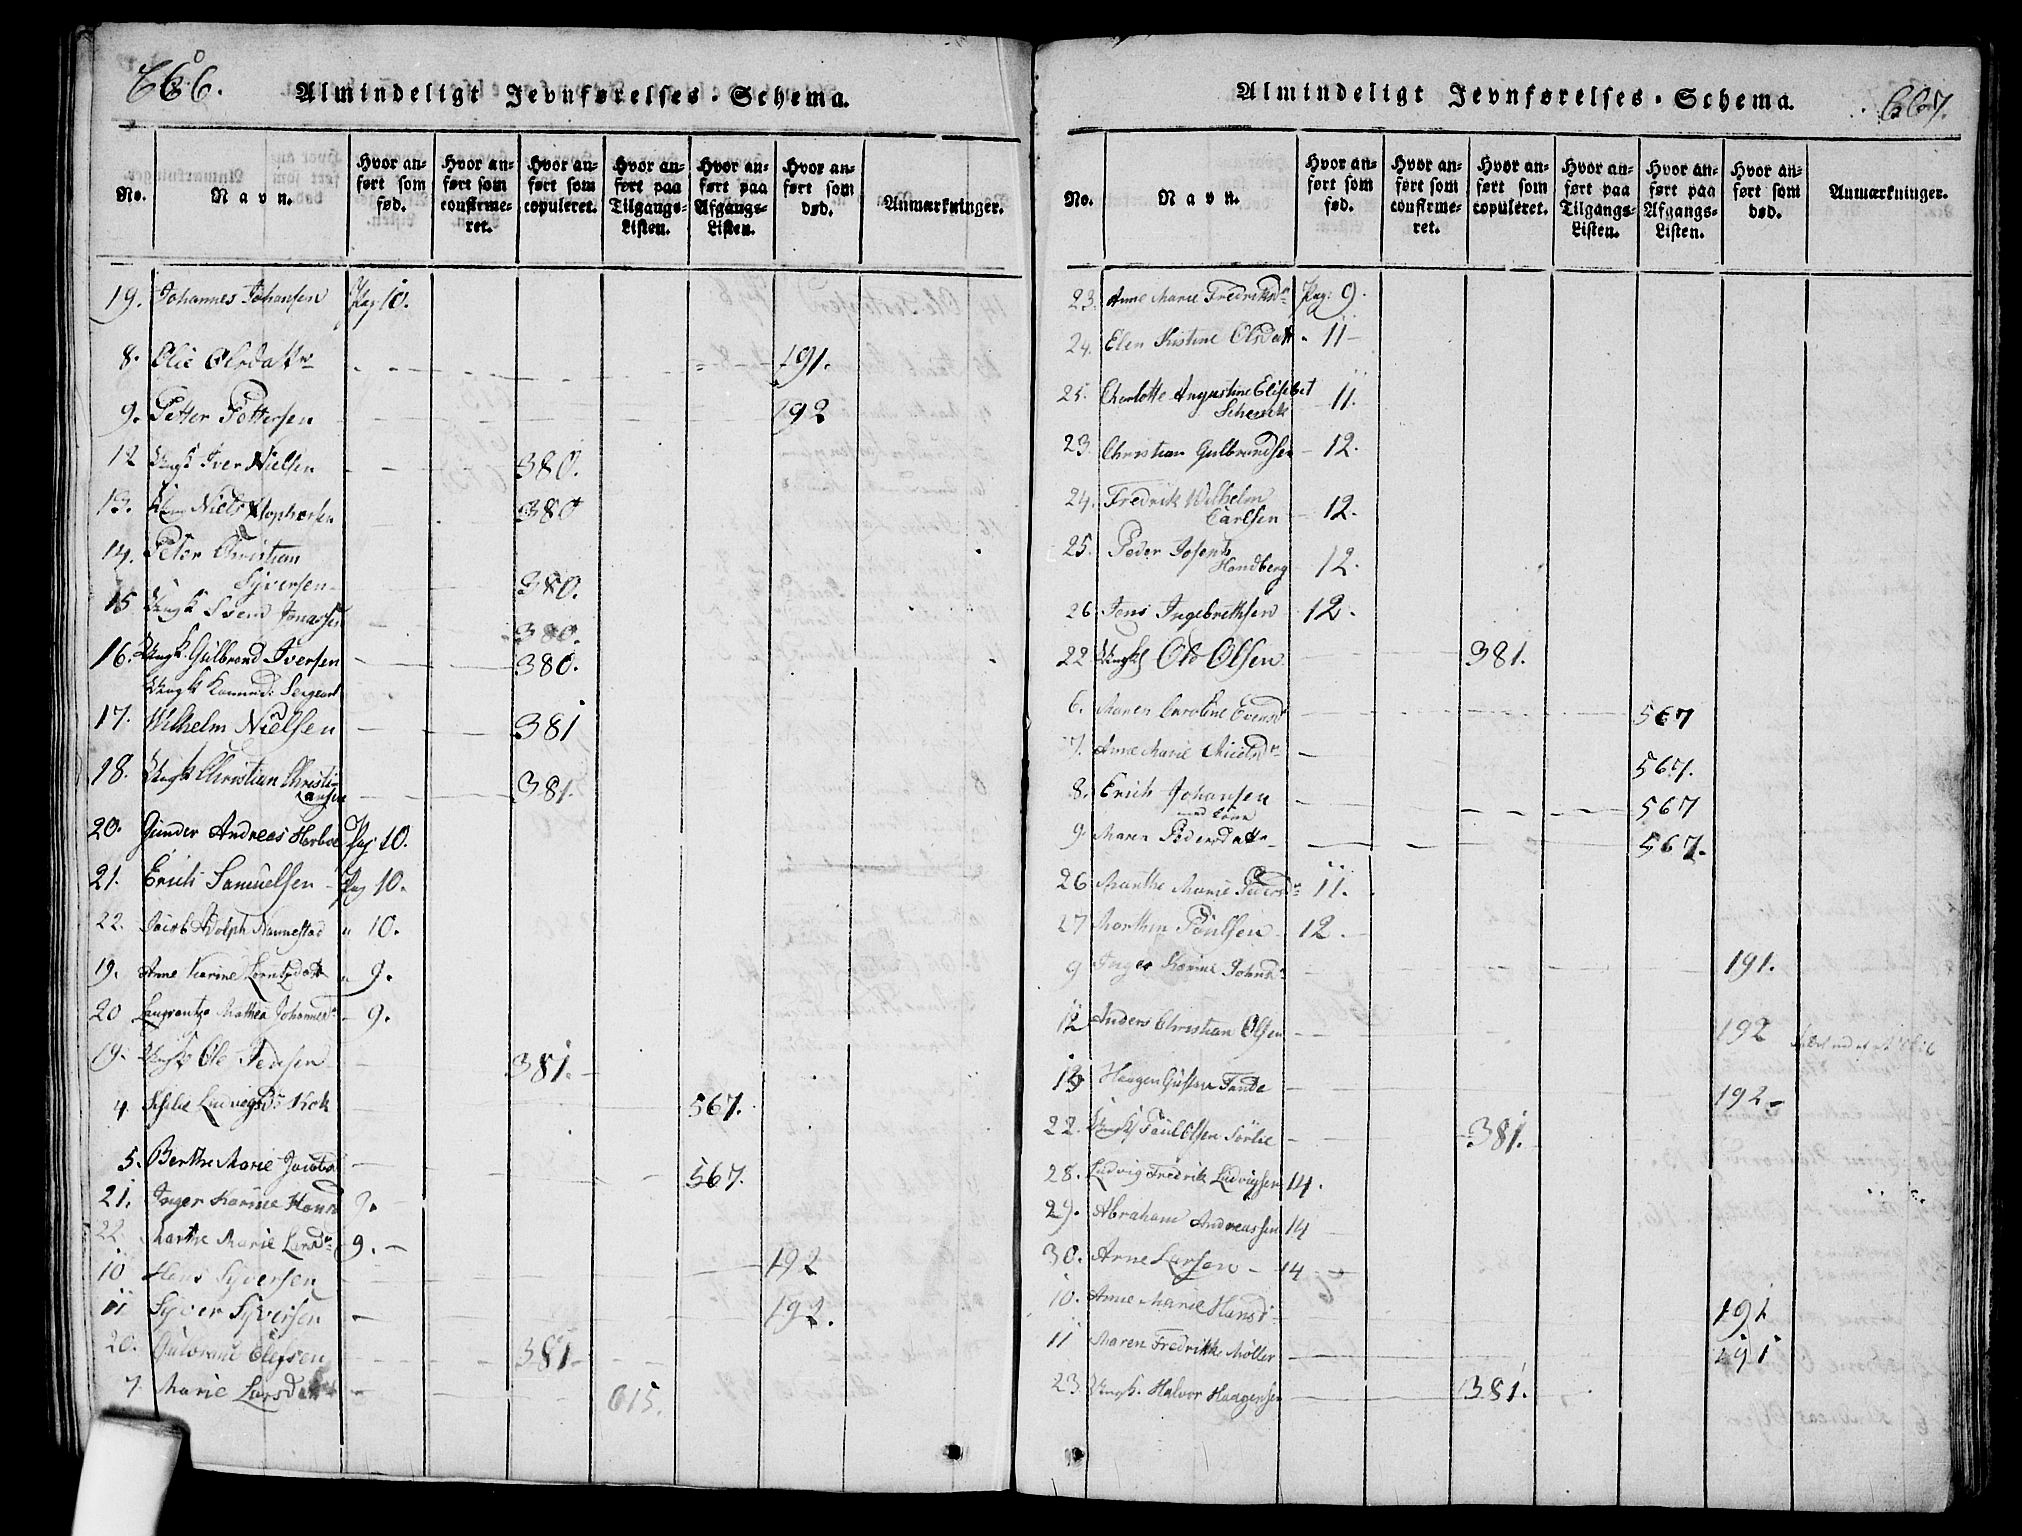 666.
Almindeligt Jevnførelses-Schema.
No. Navn. Hvor anført som fød. Hvor anført som confirmeret. Hvor anført som copuleret. Hvor anført paa Tilgangs-Listen. Hvor anført paa Afgangs-Listen. Hvor anført som død. Anmærkninger.
19. Johannes Johansen Pag 10.
8. Olie Olsdattr 191.
9. Petter Pettersen 192
12 Ungk Iver Nielsen 380.
13. Niels 380
14. Peter Christian
Syversen 380.
15 Ungk Svend Jonassen 380.
16. Ungk. Gulbrand Iversen 380.
Ungk Sergeant
17. Wilhelm Nielsen 381
18. Ungk Christian Christi
ansen 381.
20. Gunder Andreas Harboe Pag 10.
21. Erich Samuelsen Pag 10.
22. Jacob Adolph Rannestad " 10.
19. Anne Karine Lorntzdatt " 9.
20 Laurantze Mathea Johannesdr 9.
19. Ungk Ole Pedersen 381.
4. Ludvigsdr Kok 567.
5. Berthe Marie Jacobsd 567.
21. Inger Karine Hansd 9.
22 Marthe Marie Larsdr 9.
10 Hans Syversen 192
11 Syver Syversen 192.
20. Gulbrand Olefsen 381
7. Marie Larsdatt 615.
667.
Almindeligt Jevnførelses-Schema.
No. Navn. Hvor anført som fød. Hvor anført som confirmeret. Hvor anført som copuleret. Hvor anført paa Tilgangs-Listen. Hvor anført paa Afgangs-Listen. Hvor anført som død. Anmærkninger.
23. Anne Marie Fredriksdr Pag: 9.
24. Elen Kistine Olsdatt " 11
25. Charlotte Augustine Elisebet
Schenck 11.
23. Christian Gulbrandsen 12.
24. Fredrik Wilhelm
Carlsen 12.
25. Peder Joseph
Handberg 12.
26. Jens Ingebrethsen 12.
22. Ungk Ole Olsen 381.
6. Maren Caroline Evensd 567
7. Anne Marie Nielsdr 567.
8. Erich Johansen 567
med Kone
9. Maren Pedersdattr 567.
26. Marthe Marie Pedersdr 11.
27 Marthin Paulsen 12.
9 Inger Karine Johnsdr 191.
12 Anders Christian Olsen 192
13 Haagen Tande 192
22. Ungk Paul Olsen Sørlie 381.
28. Ludvig Fredrik Ludvigsen 14.
29. Abraham Andreassen 14
30. Arne Larsen 14
10. Anne Marie Hansdr 191
11 Maren Fredrikke Møller 191
23 Ungk. Halvor Haagensen 381.